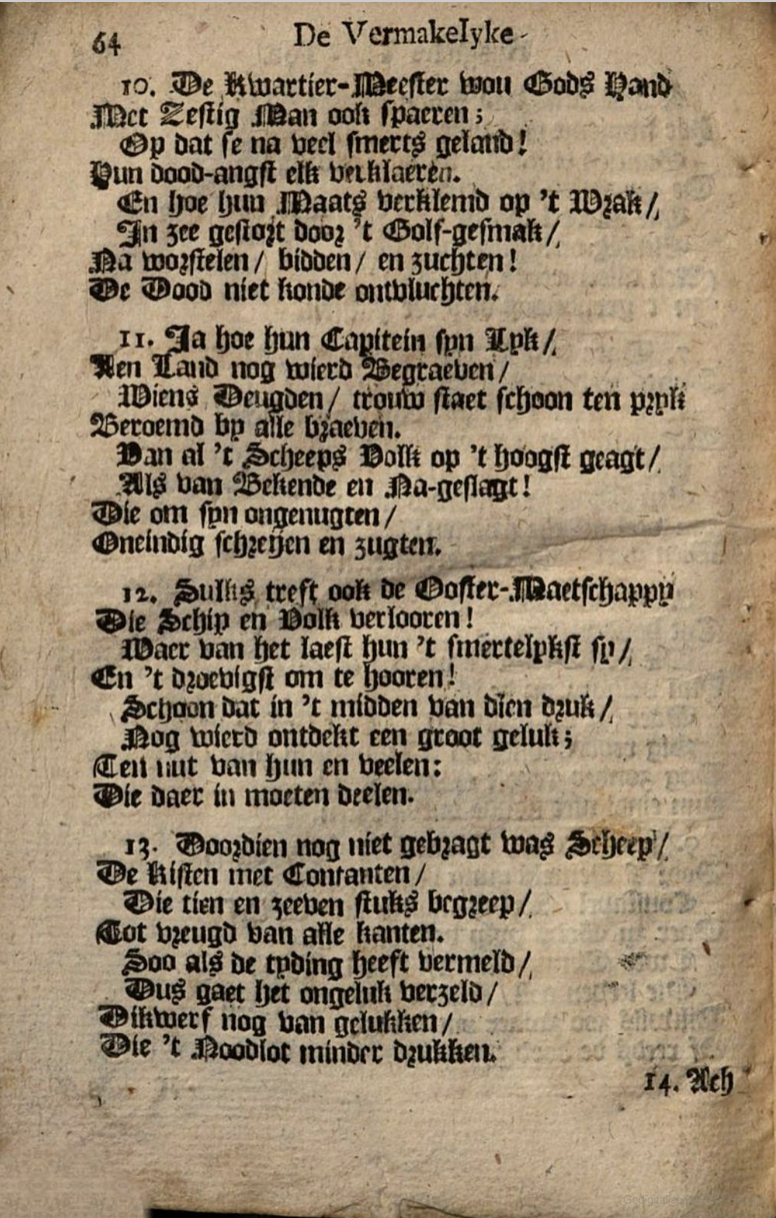 64
De Vermakelyke
10. De Kwartier-Meester wou Gods Hand
Met Zestig Man ook spaeren;
Op dat se na veel smerts geland!
Hun dood-angst elk verklaeren.
En hoe hun Maats verklemd op 't Wrak/
In zee gestort door 't Golf-gesmak/
Na worstelen/ bidden/ en zuchten!
De Dood niet konde ontvluchten.
11. Ja hoe hun Capitein syn Lyk/
Aen Land nog wierd Begraeven/
Wiens Deugden/ trouw staet schoon ten pryk
Beroemd by alle braeven.
Van al 't Scheeps Volk op 't hoogst geagt/
Als van Bekende en Na-geslagt!
Die om syn ongenugten/
Oneindig schreijen en zugten.
12. Sulks treft ook de Ooster-Maetschappy
Die Schip en Volk verlooren!
Waer van het laest hun 't smertelykst sy/
En 't droevigst om te hooren!
Schoon dat in 't midden van dien druk/
Nog wierd ontdekt een groot geluk;
Ten nut van hun en veelen:
Die daer in moeten deelen.
13. Doordien nog niet gebragt was Scheep/
De Kisten met Contanten/
Die tien en zeeven stuks begreep/
Tot vreugd van alle kanten.
Soo als de tyding heeft vermeld/
Dus gaet het ongeluk verzeld/
Dikwerf nog van gelukken/
Die 't Noodlot minder drukken.
14. Ach